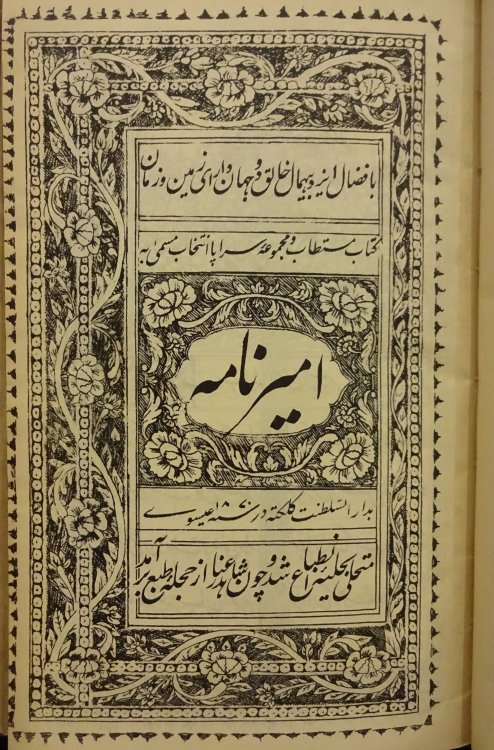 بافضال ایزد بیهمال خالق دو جهان و دارای زمین و زمان
کتاب مستطاب و مجموعهٔ سراپا انتخاب مسمی به
امیرنامه
بدار السلطنت کلکته در سنه عیسوی
متحلی بحلیه انطباع شد و چون شاهد رعنا از حجله طبع برآمد